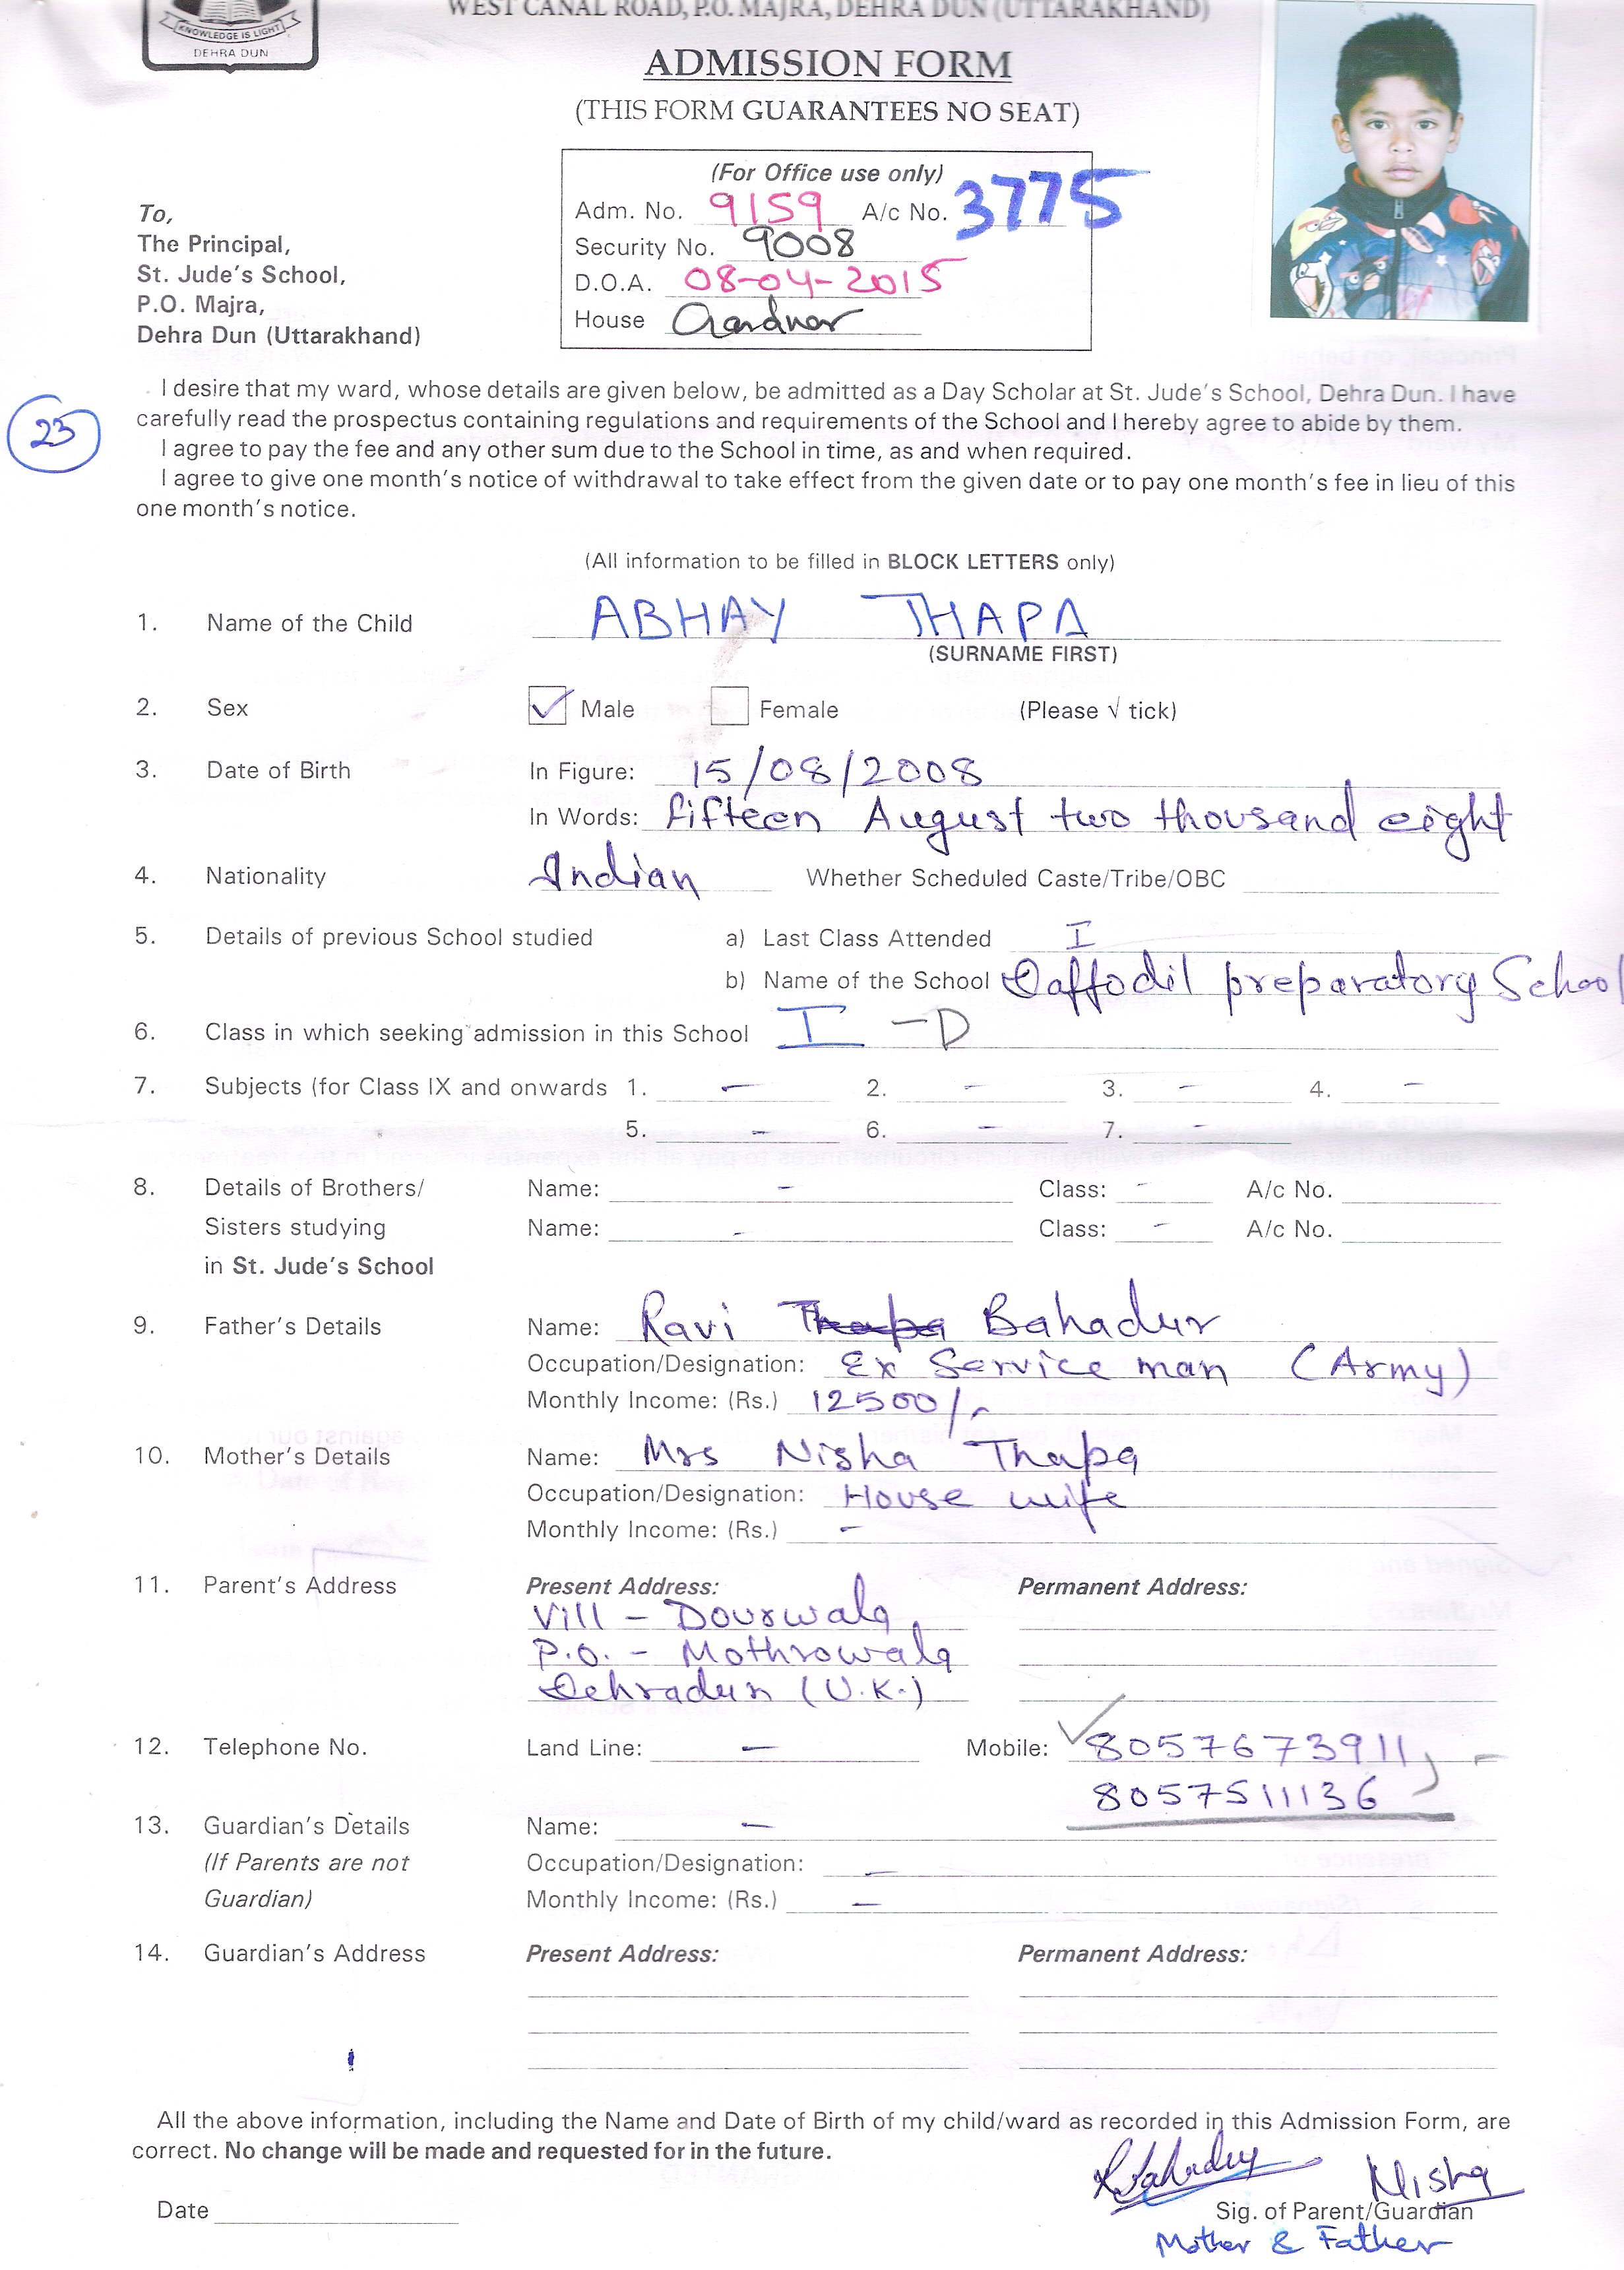 WEST CANAL ROAD, P.O. MAJRA, DEHRA DUN (UTTARAKHAND)
KNOWLEDGE IS LIGHT
DEHRA DUN
ADMISSION FORM
(THIS FORM GUARANTEES NO SEAT)
(For Office use only)
Adm. No. 9159 A/c No. 3775
Security No. 9008
D.O.A. 08-04-2015
House Gardner
To,
The Principal,
St. Jude's School,
P.O. Majra,
Dehra Dun (Uttarakhand)
23
I desire that my ward, whose details are given below, be admitted as a Day Scholar at St. Jude's School, Dehra Dun. I have
carefully read the prospectus containing regulations and requirements of the School and I hereby agree to abide by them.
I agree to pay the fee and any other sum due to the School in time, as and when required.
I agree to give one month's notice of withdrawal to take effect from the given date or to pay one month's fee in lieu of this
one month's notice.
(All information to be filled in BLOCK LETTERS only)
1. Name of the Child ABHAY THAPA
(SURNAME FIRST)
2. Sex ✓ Male Female (Please √ tick)
3. Date of Birth In Figure: 15/08/2008
In Words: fifteen August two thousand eight
4. Nationality Indian Whether Scheduled Caste/Tribe/OBC
5. Details of previous School studied a) Last Class Attended I
b) Name of the School Daffodil preparatory School
6. Class in which seeking admission in this School I - D
7. Subjects (for Class IX and onwards 1. - 2. - 3. - 4. -
5. - 6. - 7. -
8. Details of Brothers/ Name: - Class: - A/c No.
Sisters studying Name: - Class: - A/c No.
in St. Jude's School
9. Father's Details Name: Ravi Thapa Bahadur
Occupation/Designation: Ex Service man (Army)
Monthly Income: (Rs.) 12500/-
10. Mother's Details Name: Mrs Nisha Thapa
Occupation/Designation: House wife
Monthly Income: (Rs.) -
11. Parent's Address Present Address: Permanent Address:
Vill - Dourwala
P.O. - Mothrowala
Dehradun (U.K.)
12. Telephone No. Land Line: - Mobile: 8057673911,
8057511136
13. Guardian's Details Name: -
(If Parents are not Occupation/Designation: -
Guardian) Monthly Income: (Rs.) -
14. Guardian's Address Present Address: Permanent Address:
All the above information, including the Name and Date of Birth of my child/ward as recorded in this Admission Form, are
correct. No change will be made and requested for in the future.
RBahadur Nisha
Date Sig. of Parent/Guardian
Mother & Father